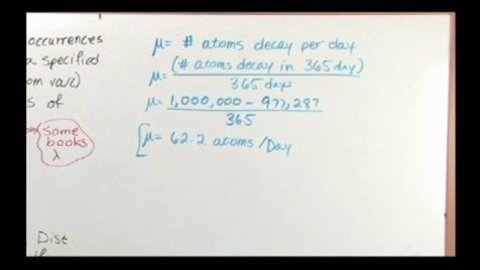 occurrences
a specified
om var.)
s of
some
books
λ
μ = # atoms decay per day
μ = (# atoms decay in 365 day)
365 days
μ = 1,000,000 - 977,287
365
μ = 62.2 atoms/Day
Dist.